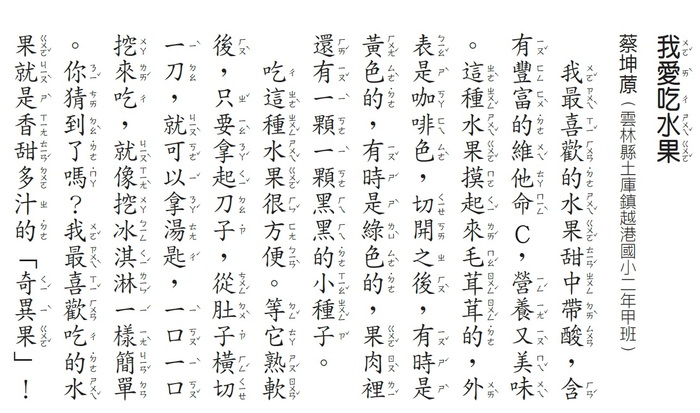 我愛吃水果
蔡坤蒝（雲林縣土庫鎮越港國小二年甲班）
我最喜歡的水果甜中帶酸，含
有豐富的維他命C，營養又美味
。這種水果摸起來毛茸茸的，外
表是咖啡色，切開之後，有時是
黃色的，有時是綠色的，果肉裡
還有一顆一顆黑黑的小種子。
吃這種水果很方便。等它熟軟
後，只要拿起刀子，從肚子橫切
一刀，就可以拿湯匙，一口一口
挖來吃，就像挖冰淇淋一樣簡單
。你猜到了嗎？我最喜歡吃的水
果就是香甜多汁的「奇異果」！